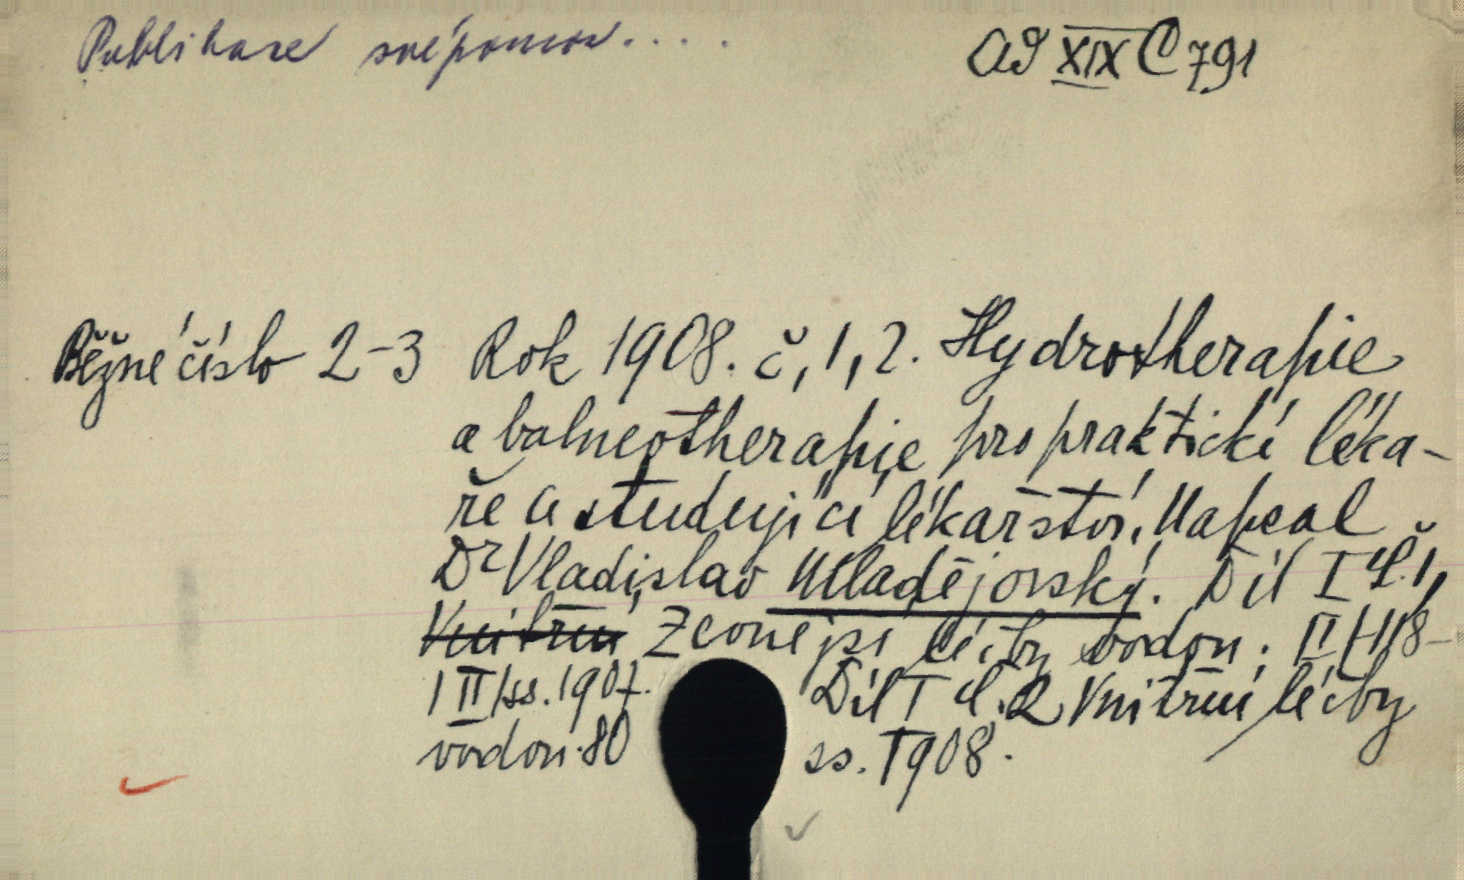 Publikace svépomoc....
Ad XIX C 791
Běžné číslo 2-3 Rok 1908. č, 1, 2. Hydrotherapie
a balneotherapie pro praktické léka-
ře a studující lékařství. Napsal
Dr Vladislav Mladějovský. Díl I č. 1,
Vnitřní Zevnější léčby vodou; II/118-
1 II/ss. 1907. Díl I č. 2 Vnitřní léčby
vodou. 80 ss. 1908.